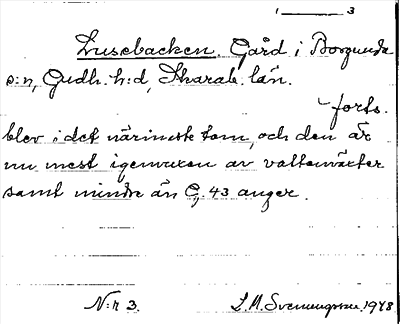 1 3
Lusebacken. Gård i Borgunda
s:n, Gudh. h:d, Skarab. län.
forts.
blev i det närmeste tom, och den är
nu mest igenvuxen av vattenväxter
samt mindre än G, 43 anger.
N:r 3. L.M. Svenungsson. 1948